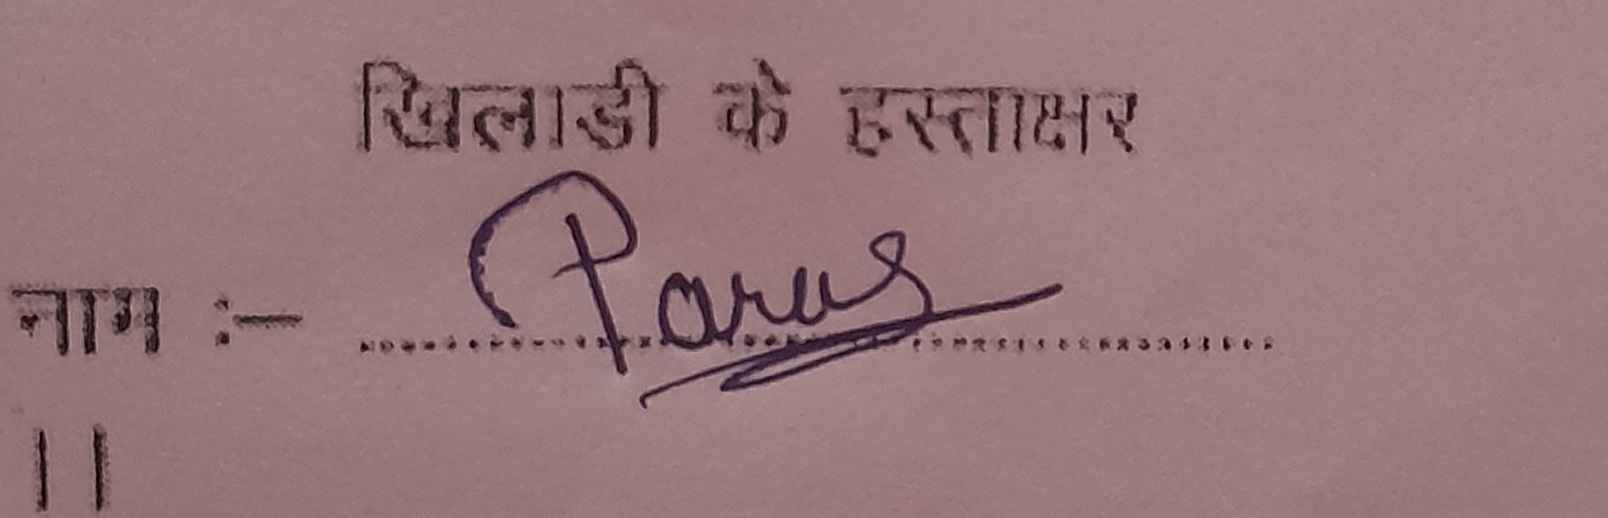 खिलाडी के हस्ताक्षर
नाम :- Paras
||